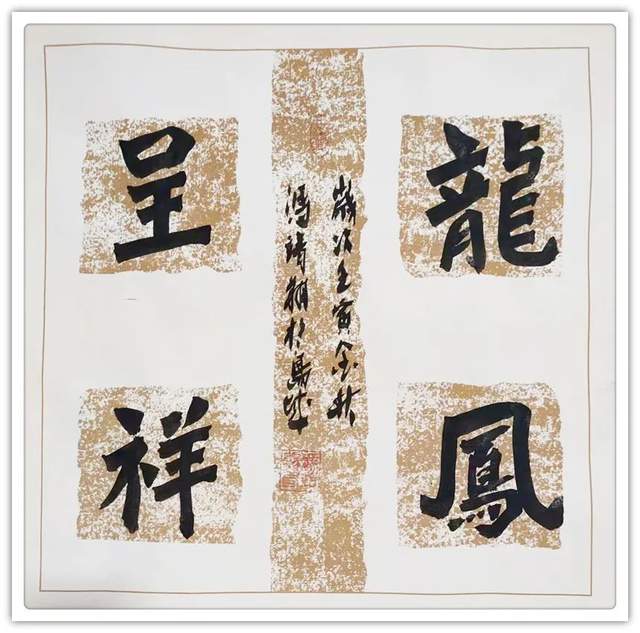 龍鳳
呈祥
歲次壬寅金秋
馮靖於城